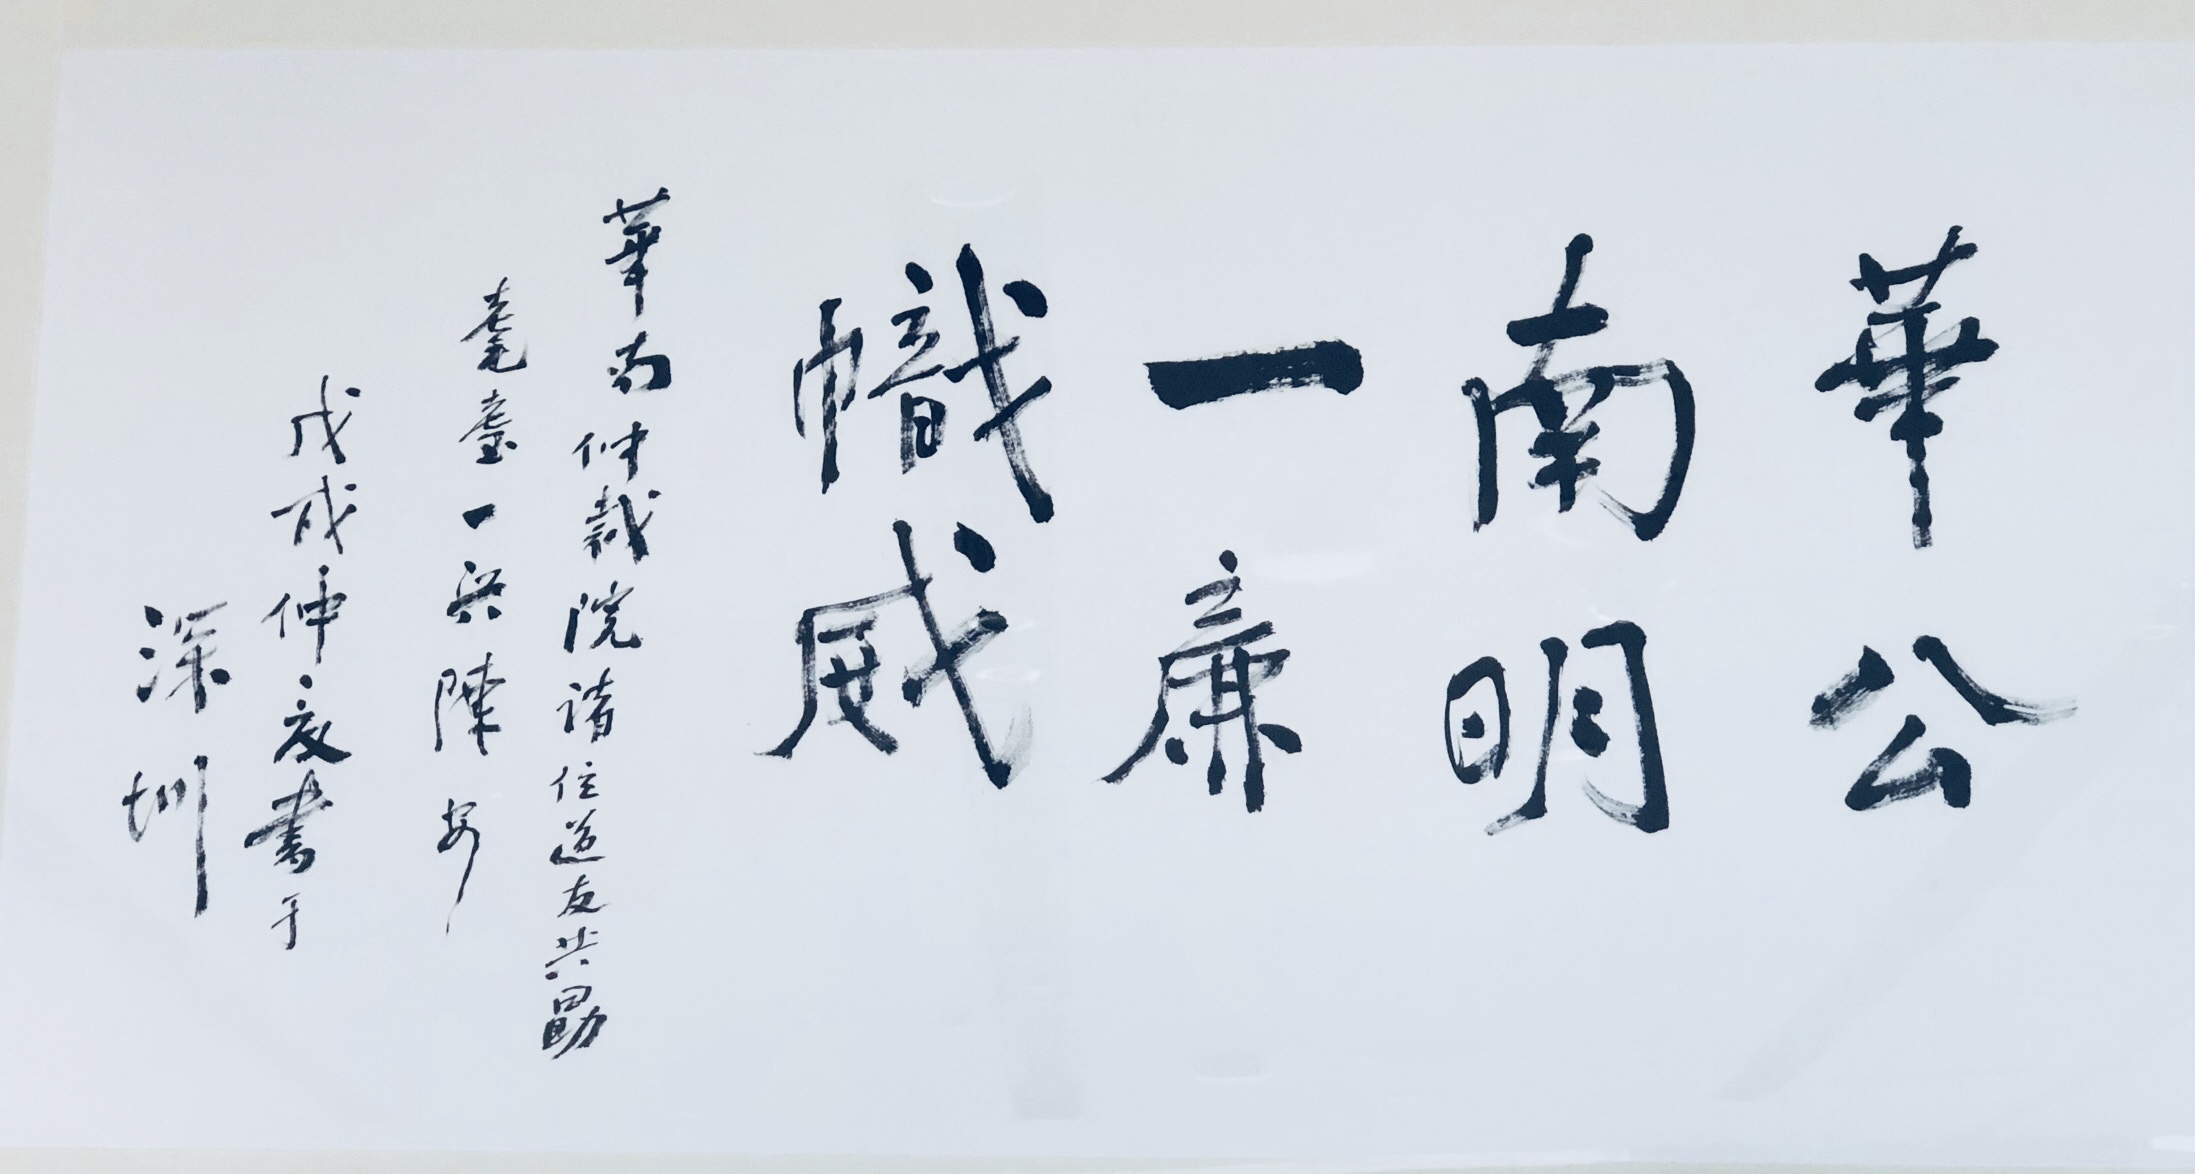 華南一幟
公明廉威
華南仲裁院諸位道友共勗
耄耋一兵陳安
戊戌仲夏書于
深圳